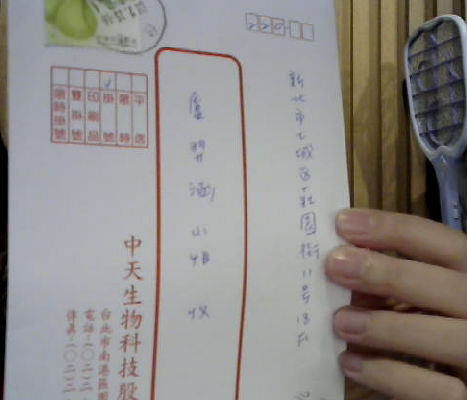 新北市土城區莊園街11号13F
盧羿涵小姐 收
平信
限時
掛號
印刷品
雙掛號
限時掛號
中天生物科技股
台北市南港區園
電話:(〇二)二
傳真:(〇二)二